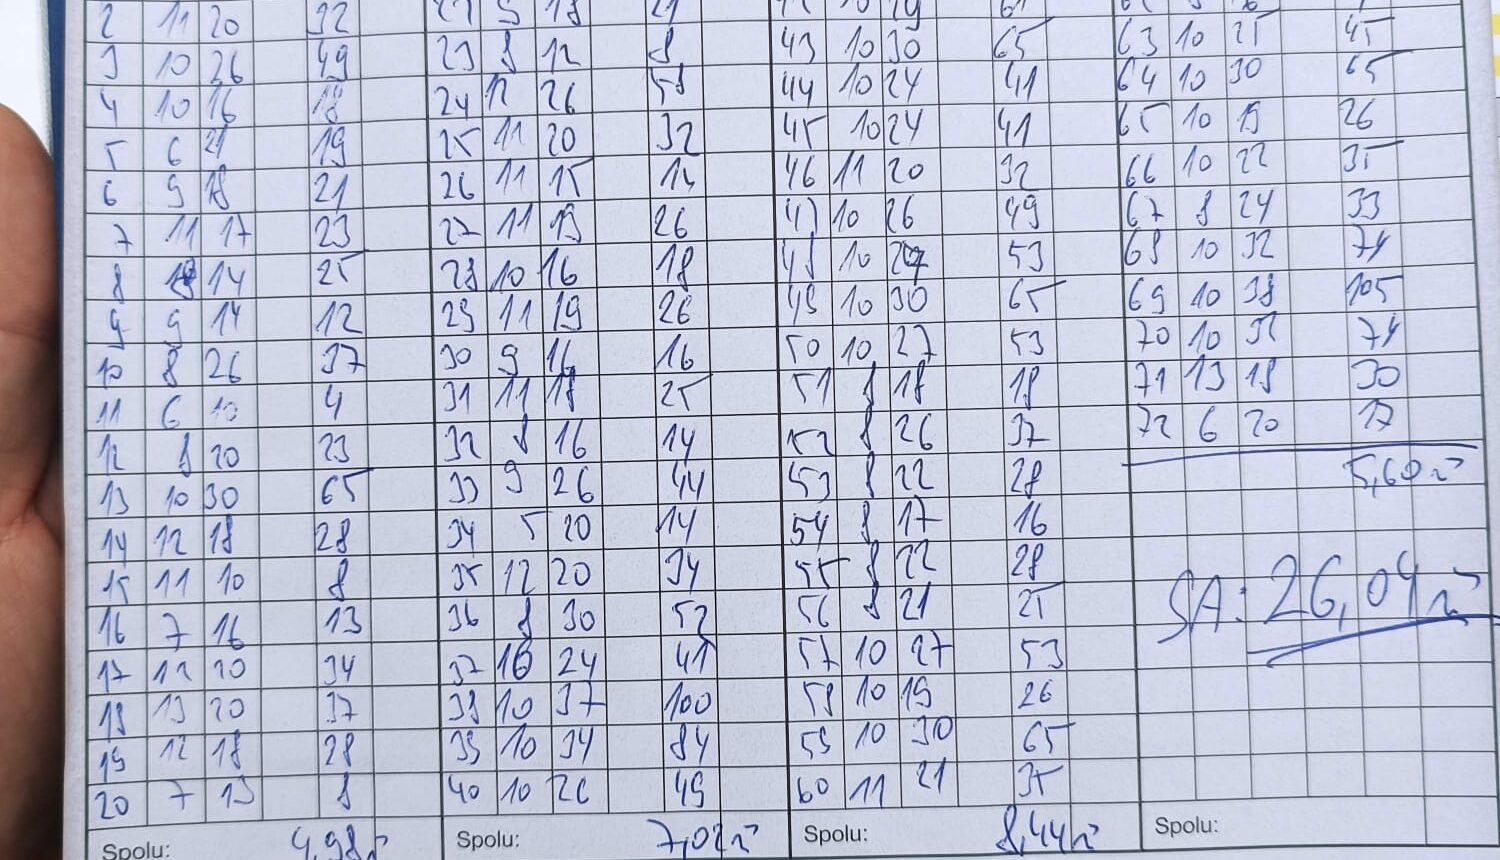 2 11 20 32
3 10 26 49
4 10 16 18
5 6 21 19
6 9 18 21
7 11 17 23
8 14 25
9 9 14 12
10 8 26 37
11 6 10 4
12 8 20 23
13 10 30 65
14 12 18 28
15 11 10 8
16 7 16 13
17 12 20 34
18 13 20 37
19 12 18 28
20 7 13 8
Spolu: 4,98
23 8 12 8
24 12 26 58
25 11 20 32
26 11 15 14
27 11 19 26
28 10 16 18
29 11 19 26
30 9 16 16
31 11 18 25
32 8 16 14
33 9 26 44
34 5 20 14
35 12 20 34
36 8 30 52
37 10 24 41
38 10 37 100
39 10 34 84
40 10 26 49
Spolu: 7,02
43 10 30 65
44 10 24 41
45 10 24 41
46 11 20 32
47 10 26 49
48 10 27 53
49 10 30 65
50 10 27 53
51 8 18 18
52 8 26 37
53 8 22 28
54 8 17 16
55 8 22 28
56 8 21 25
57 10 27 53
58 10 19 26
59 10 30 65
60 11 21 35
Spolu: 8,44
63 10 25 45
64 10 30 65
65 10 19 26
66 10 22 35
67 8 24 33
68 10 32 74
69 10 38 105
70 10 32 74
71 13 18 30
72 6 20 17
5,60
SA: 26,04
Spolu: